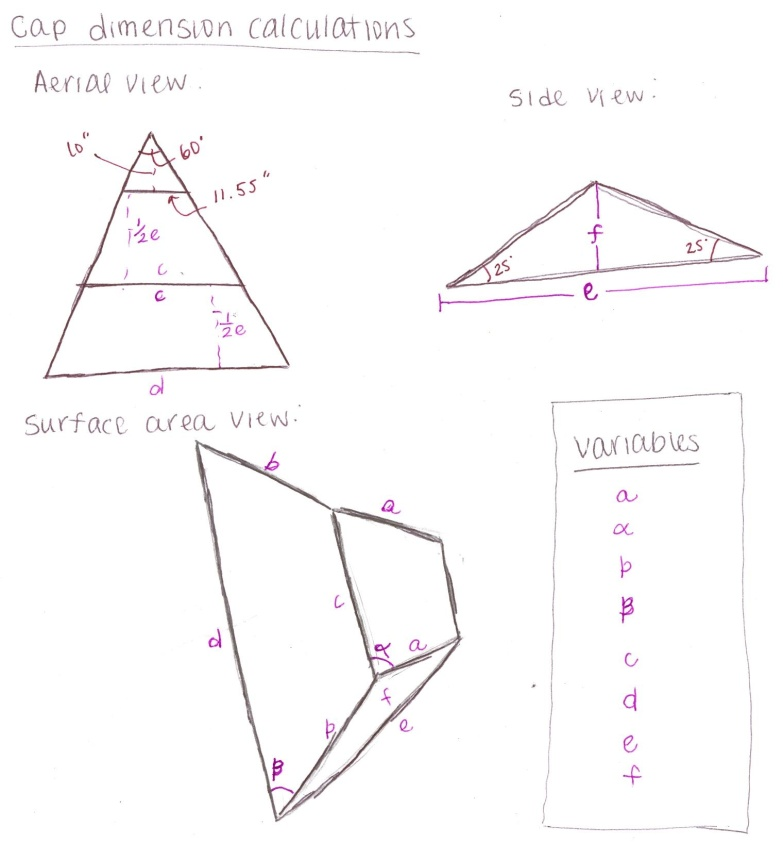 Cap dimension calculations
Aerial view.
Side view:
10"
60°
11.55"
½e
c
c
½e
d
f
25°
25°
e
Surface area view:
b
a
c
d
α
a
f
b
e
β
variables
a
α
b
β
c
d
e
f